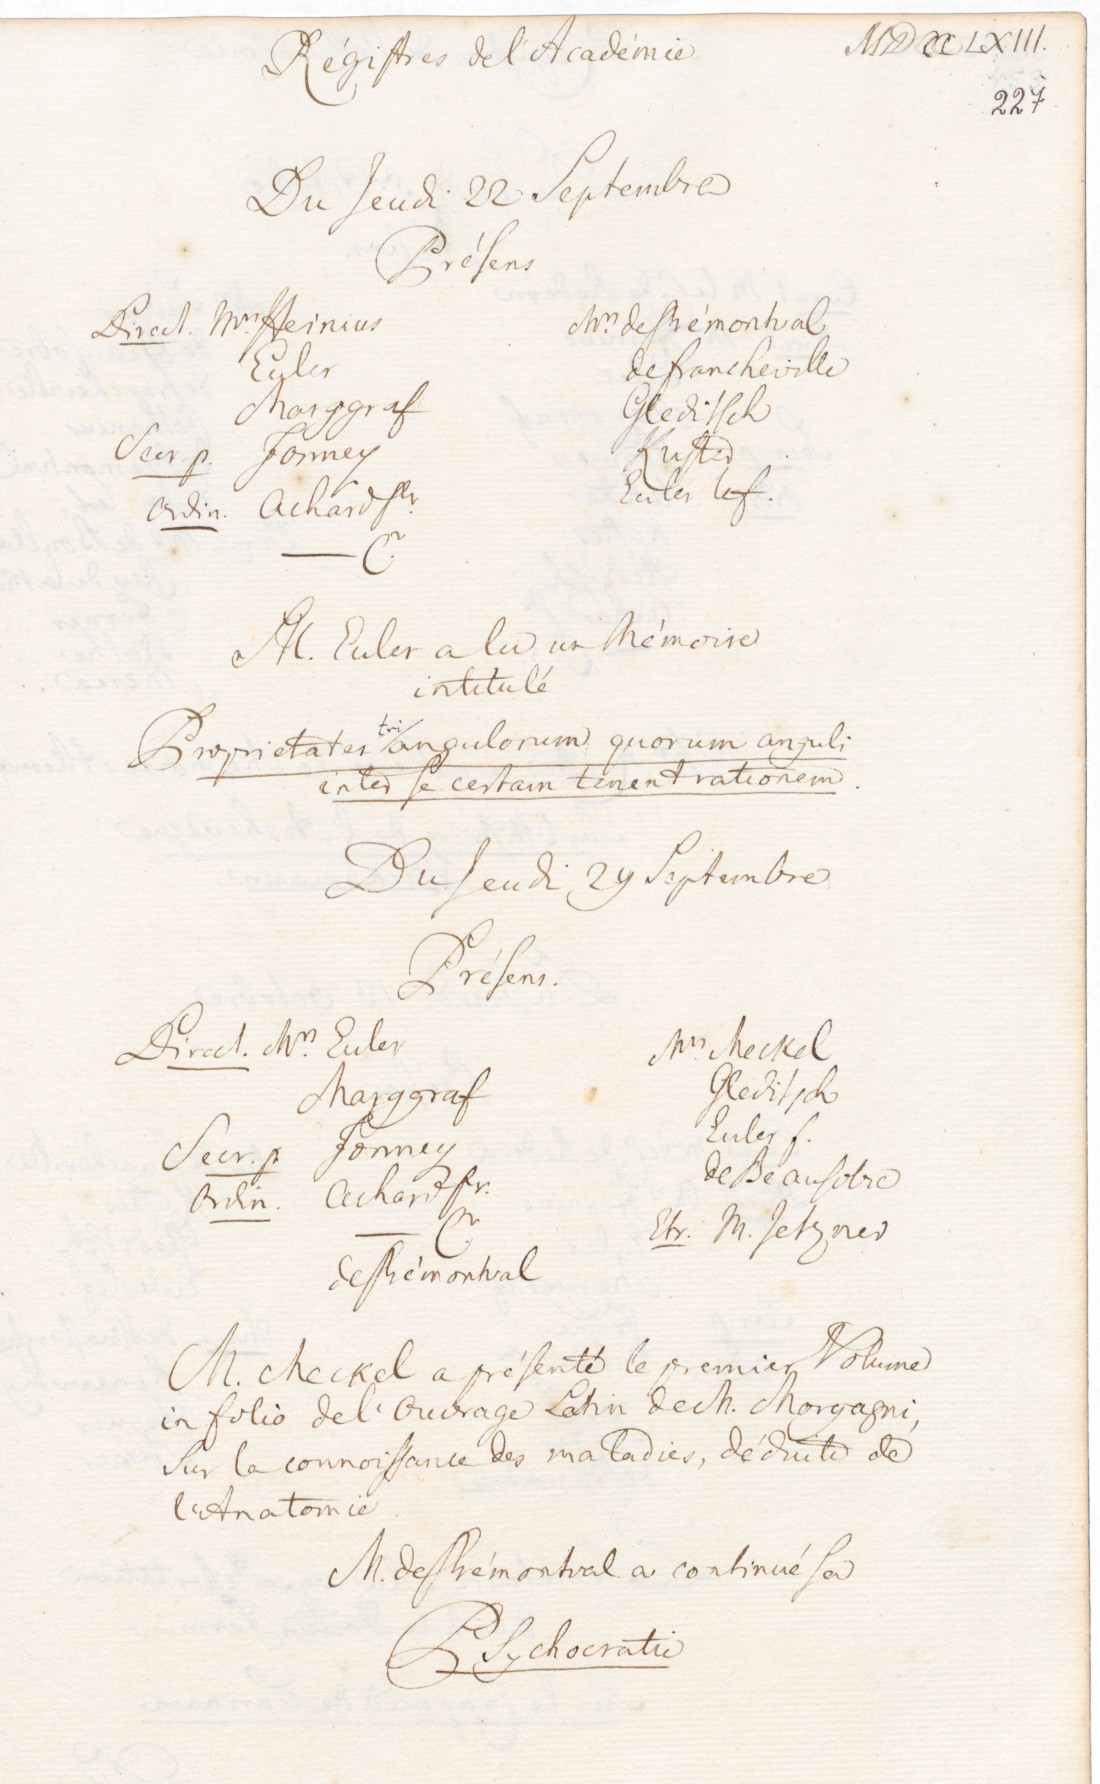 Régistres de l'Académie
MDCCLXIII.
227
Du Jeudi 22 Septembre
Présens
Direct. Mrs Heinius
Euler
Marggraf
Secr. p. Formey
Ordin. Achard Sr.
—— Cr
Mrs de Prémontval
de Francheville
Gleditsch
Kuster
Euler le f.
M. Euler a lu un Mémoire
intitulé
Proprietates triangulorum quorum anguli
inter se certam tenent rationem.
Du Jeudi 29 Septembre
Présens.
Direct. Mrs Euler
Marggraf
Secr. p Formey
Ordin. Achard Sr.
—— Cr
de Prémontval
Mrs Meckel
Gleditsch
Euler f.
de Beausobre
Etr. M. Jetzner
M. Meckel a présenté le premier Volume
in folio de l'Ouvrage Latin de M. Morgagni,
sur la connoissance des maladies, déduite de
l'Anatomie.
M. de Prémontval a continué sa
Psychocratie